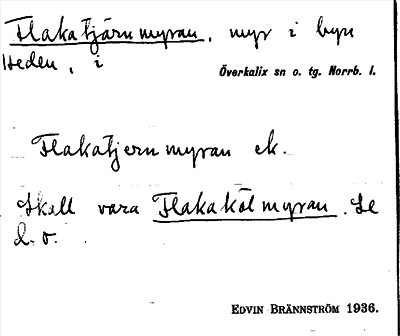 Flakatjärnmyran, myr i byn
Heden, i
Överkalix sn o. tg. Norrb. l.
Flakatjernmyran ek.
Skall vara Flakakölmyran. Se
d. o.
EDVIN BRÄNNSTRÖM 1936.